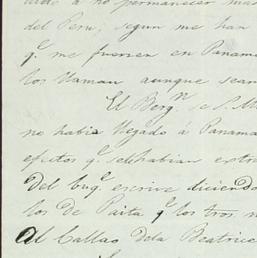 dido á no permanecer mas
del Peru, segun me han
qe. me fuercen en Panama
los llaman aunque sean
El Bergn. de S. M.
no habia llegado á Panama
efectos qe. se habian extra
Del buqe. escrive diciendo
los de Paita y los tros
Al Callao dela Beatrice